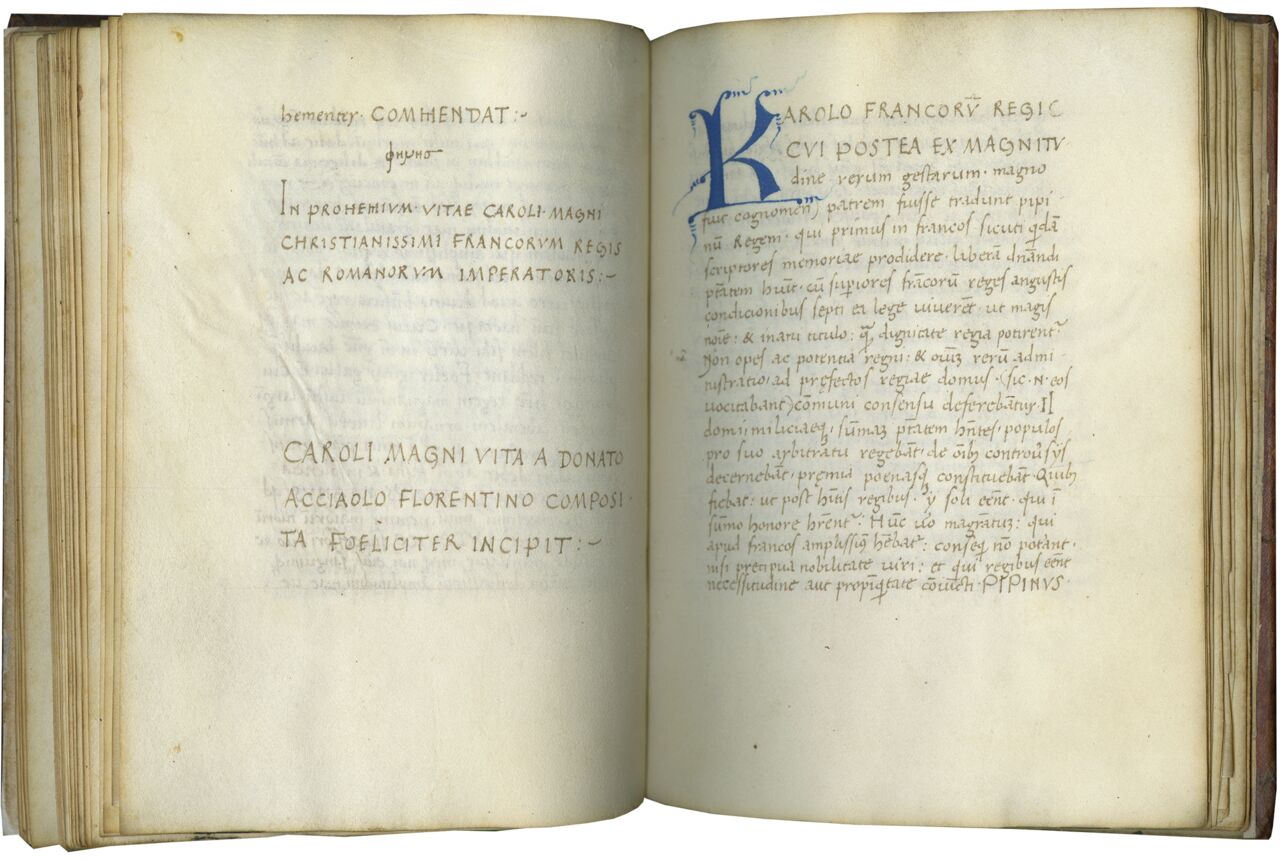 hementer. COMMENDAT :~
IN PROHEMIVM VITAE CAROLI MAGNI
CHRISTIANISSIMI FRANCORVM REGIS
AC ROMANORVM IMPERATORIS :~
CAROLI MAGNI VITA A DONATO
ACCIAOLO FLORENTINO COMPOSI
TA FOELICITER INCIPIT :~
KAROLO FRANCORV̄ REGI C
CVI POSTEA EX MAGNITV
dine rerum gestarum. magno
fuit cognomen) patrem fuisse tradunt pipi
nū Regem. qui primus in francos. sicuti q̄dā
scriptores memoriae prodidere. liberā dn̄andi
ptātem hūit. cū superiores frācorū reges angustis
condicionibus septi ea lege viverēt. ut magis
noīe: & inani titulo: dignitate regia potirent̄
Non opes ac potentia regni: & rerū admi
nistratio. ad prefectos regiae domus. (sic .N. eos
vocitabant) cōmuni consensu deferebātur. II
domi miliciaeq; sūmaz ptātem hn̄tes. populos
pro suo arbitratu regebāt. de oīb; controv̄sijs
decernebāt. premia poenasq; constituebāt. Quib;
fiebat: ut post hn̄tis regibus. ij soli eēnt. qui ī
sūmo honore hrēnt̄. Hūc v̄o magratuz: qui
apud francos amplissim; hēbat̄: conseq̄ nō poterant.
nisi precipua nobilitate viri: et qui regibus eēnt
necessitudine aut propīq̄tate cōiuncti. PIPINVS.